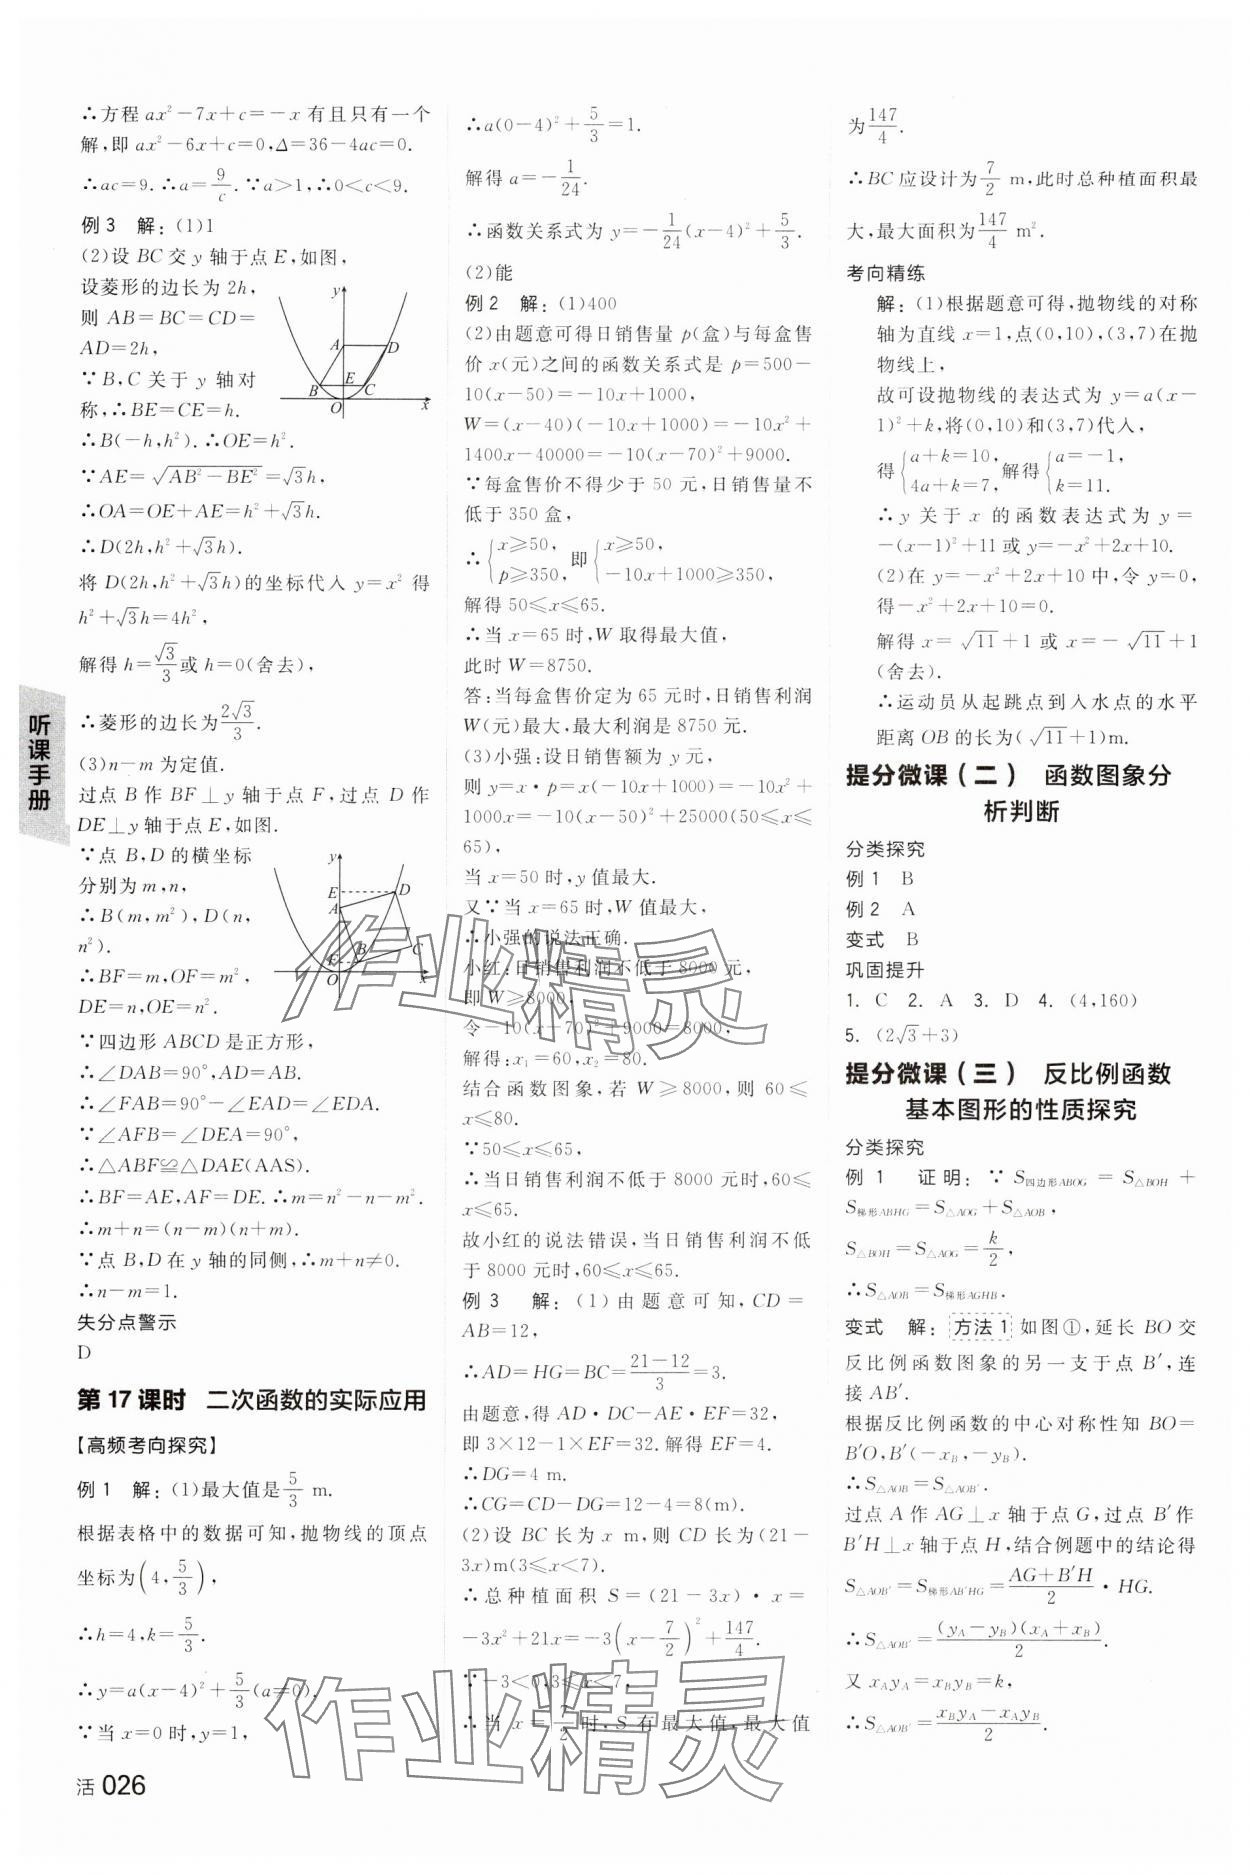 ∴方程 ax²－7x＋c＝－x 有且只有一个
解,即 ax²－6x＋c＝0,Δ＝36－4ac＝0.
∴ac＝9. ∴a＝9/c. ∵a＞1,∴0＜c＜9.
例 3 解:(1)1
(2)设 BC 交 y 轴于点 E,如图,
设菱形的边长为 2h,
则 AB＝BC＝CD＝
AD＝2h,
∵B,C 关于 y 轴对
称,∴BE＝CE＝h.
∴B(－h,h²). ∴OE＝h².
∵AE＝√(AB²－BE²)＝√3h,
∴OA＝OE＋AE＝h²＋√3h.
∴D(2h,h²＋√3h).
将 D(2h,h²＋√3h)的坐标代入 y＝x² 得
h²＋√3h＝4h²,
解得 h＝√3/3 或 h＝0(舍去),
∴菱形的边长为 2√3/3.
(3)n－m 为定值.
过点 B 作 BF⊥y 轴于点 F,过点 D 作
DE⊥y 轴于点 E,如图.
∵点 B,D 的横坐标
分别为 m,n,
∴B(m,m²),D(n,
n²).
∴BF＝m,OF＝m²,
DE＝n,OE＝n².
∵四边形 ABCD 是正方形,
∴∠DAB＝90°,AD＝AB.
∴∠FAB＝90°－∠EAD＝∠EDA.
∵∠AFB＝∠DEA＝90°,
∴△ABF≌△DAE(AAS).
∴BF＝AE,AF＝DE. ∴m＝n²－n－m².
∴m＋n＝(n－m)(n＋m).
∵点 B,D 在 y 轴的同侧,∴m＋n≠0.
∴n－m＝1.
失分点警示
D
第 17 课时 二次函数的实际应用
【高频考向探究】
例 1 解:(1)最大值是 5/3 m.
根据表格中的数据可知,抛物线的顶点
坐标为(4,5/3),
∴h＝4,k＝5/3.
∴y＝a(x－4)²＋5/3(a＝0).
∵当 x＝0 时,y＝1,
∴a(0－4)²＋5/3＝1.
解得 a＝－1/24.
∴函数关系式为 y＝－1/24(x－4)²＋5/3.
(2)能
例 2 解:(1)400
(2)由题意可得日销售量 p(盒)与每盒售
价 x(元)之间的函数关系式是 p＝500－
10(x－50)＝－10x＋1000,
W＝(x－40)(－10x＋1000)＝－10x²＋
1400x－40000＝－10(x－70)²＋9000.
∵每盒售价不得少于 50 元,日销售量不
低于 350 盒,
∴{x≥50, p≥350, 即{x≥50, －10x＋1000≥350,
解得 50≤x≤65.
∴当 x＝65 时,W 取得最大值,
此时 W＝8750.
答:当每盒售价定为 65 元时,日销售利润
W(元)最大,最大利润是 8750 元.
(3)小强:设日销售额为 y 元.
则 y＝x·p＝x(－10x＋1000)＝－10x²＋
1000x＝－10(x－50)²＋25000(50≤x≤
65),
当 x＝50 时,y 值最大.
又∵当 x＝65 时,W 值最大,
∴小强的说法正确.
小红:日销售利润不低于 8000 元,
即 W≥8000,
令－10(x－70)²＋9000＝8000,
解得:x₁＝60,x₂＝80.
结合函数图象,若 W≥8000,则 60≤
x≤80.
∵50≤x≤65,
∴当日销售利润不低于 8000 元时,60≤
x≤65.
故小红的说法错误,当日销售利润不低
于 8000 元时,60≤x≤65.
例 3 解:(1)由题意可知,CD＝
AB＝12,
∴AD＝HG＝BC＝(21－12)/3＝3.
由题意,得 AD·DC－AE·EF＝32,
即 3×12－1×EF＝32. 解得 EF＝4.
∴DG＝4 m.
∴CG＝CD－DG＝12－4＝8(m).
(2)设 BC 长为 x m,则 CD 长为(21－
3x)m(3≤x＜7).
∴总种植面积 S＝(21－3x)·x＝
－3x²＋21x＝－3(x－7/2)²＋147/4.
∵－3＜0,3≤x＜7,
∴当 x＝7/2 时,S 有最大值,最大值
为 147/4.
∴BC 应设计为 7/2 m,此时总种植面积最
大,最大面积为 147/4 m².
考向精练
解:(1)根据题意可得,抛物线的对称
轴为直线 x＝1,点(0,10),(3,7)在抛
物线上,
故可设抛物线的表达式为 y＝a(x－
1)²＋k,将(0,10)和(3,7)代入,
得{a＋k＝10, 4a＋k＝7, 解得{a＝－1, k＝11.
∴y 关于 x 的函数表达式为 y＝
－(x－1)²＋11 或 y＝－x²＋2x＋10.
(2)在 y＝－x²＋2x＋10 中,令 y＝0,
得－x²＋2x＋10＝0.
解得 x＝√11＋1 或 x＝－√11＋1
(舍去).
∴运动员从起跳点到入水点的水平
距离 OB 的长为(√11＋1)m.
提分微课(二) 函数图象分
析判断
分类探究
例 1 B
例 2 A
变式 B
巩固提升
1. C 2. A 3. D 4. (4,160)
5. (2√3＋3)
提分微课(三) 反比例函数
基本图形的性质探究
分类探究
例 1 证明:∵S四边形ABOG＝S△BOH＋
S梯形ABHG＝S△AOG＋S△AOB,
S△BOH＝S△AOG＝k/2,
∴S△AOB＝S梯形AGHB.
变式 解:方法 1 如图①,延长 BO 交
反比例函数图象的另一支于点 B′,连
接 AB′.
根据反比例函数的中心对称性知 BO＝
B′O,B′(－xB,－yB).
∴S△AOB＝S△AOB′.
过点 A 作 AG⊥x 轴于点 G,过点 B′作
B′H⊥x 轴于点 H,结合例题中的结论得
S△AOB′＝S梯形AB′HG＝(AG＋B′H)/2·HG.
∴S△AOB′＝(yA－yB)(xA＋xB)/2.
又 xAyA＝xByB＝k,
∴S△AOB′＝(xByA－xAyB)/2.
听课手册
活 026
y
A
D
B
E
C
O
x
y
E
D
A
C
F
B
O
x
作业精灵
作业精灵